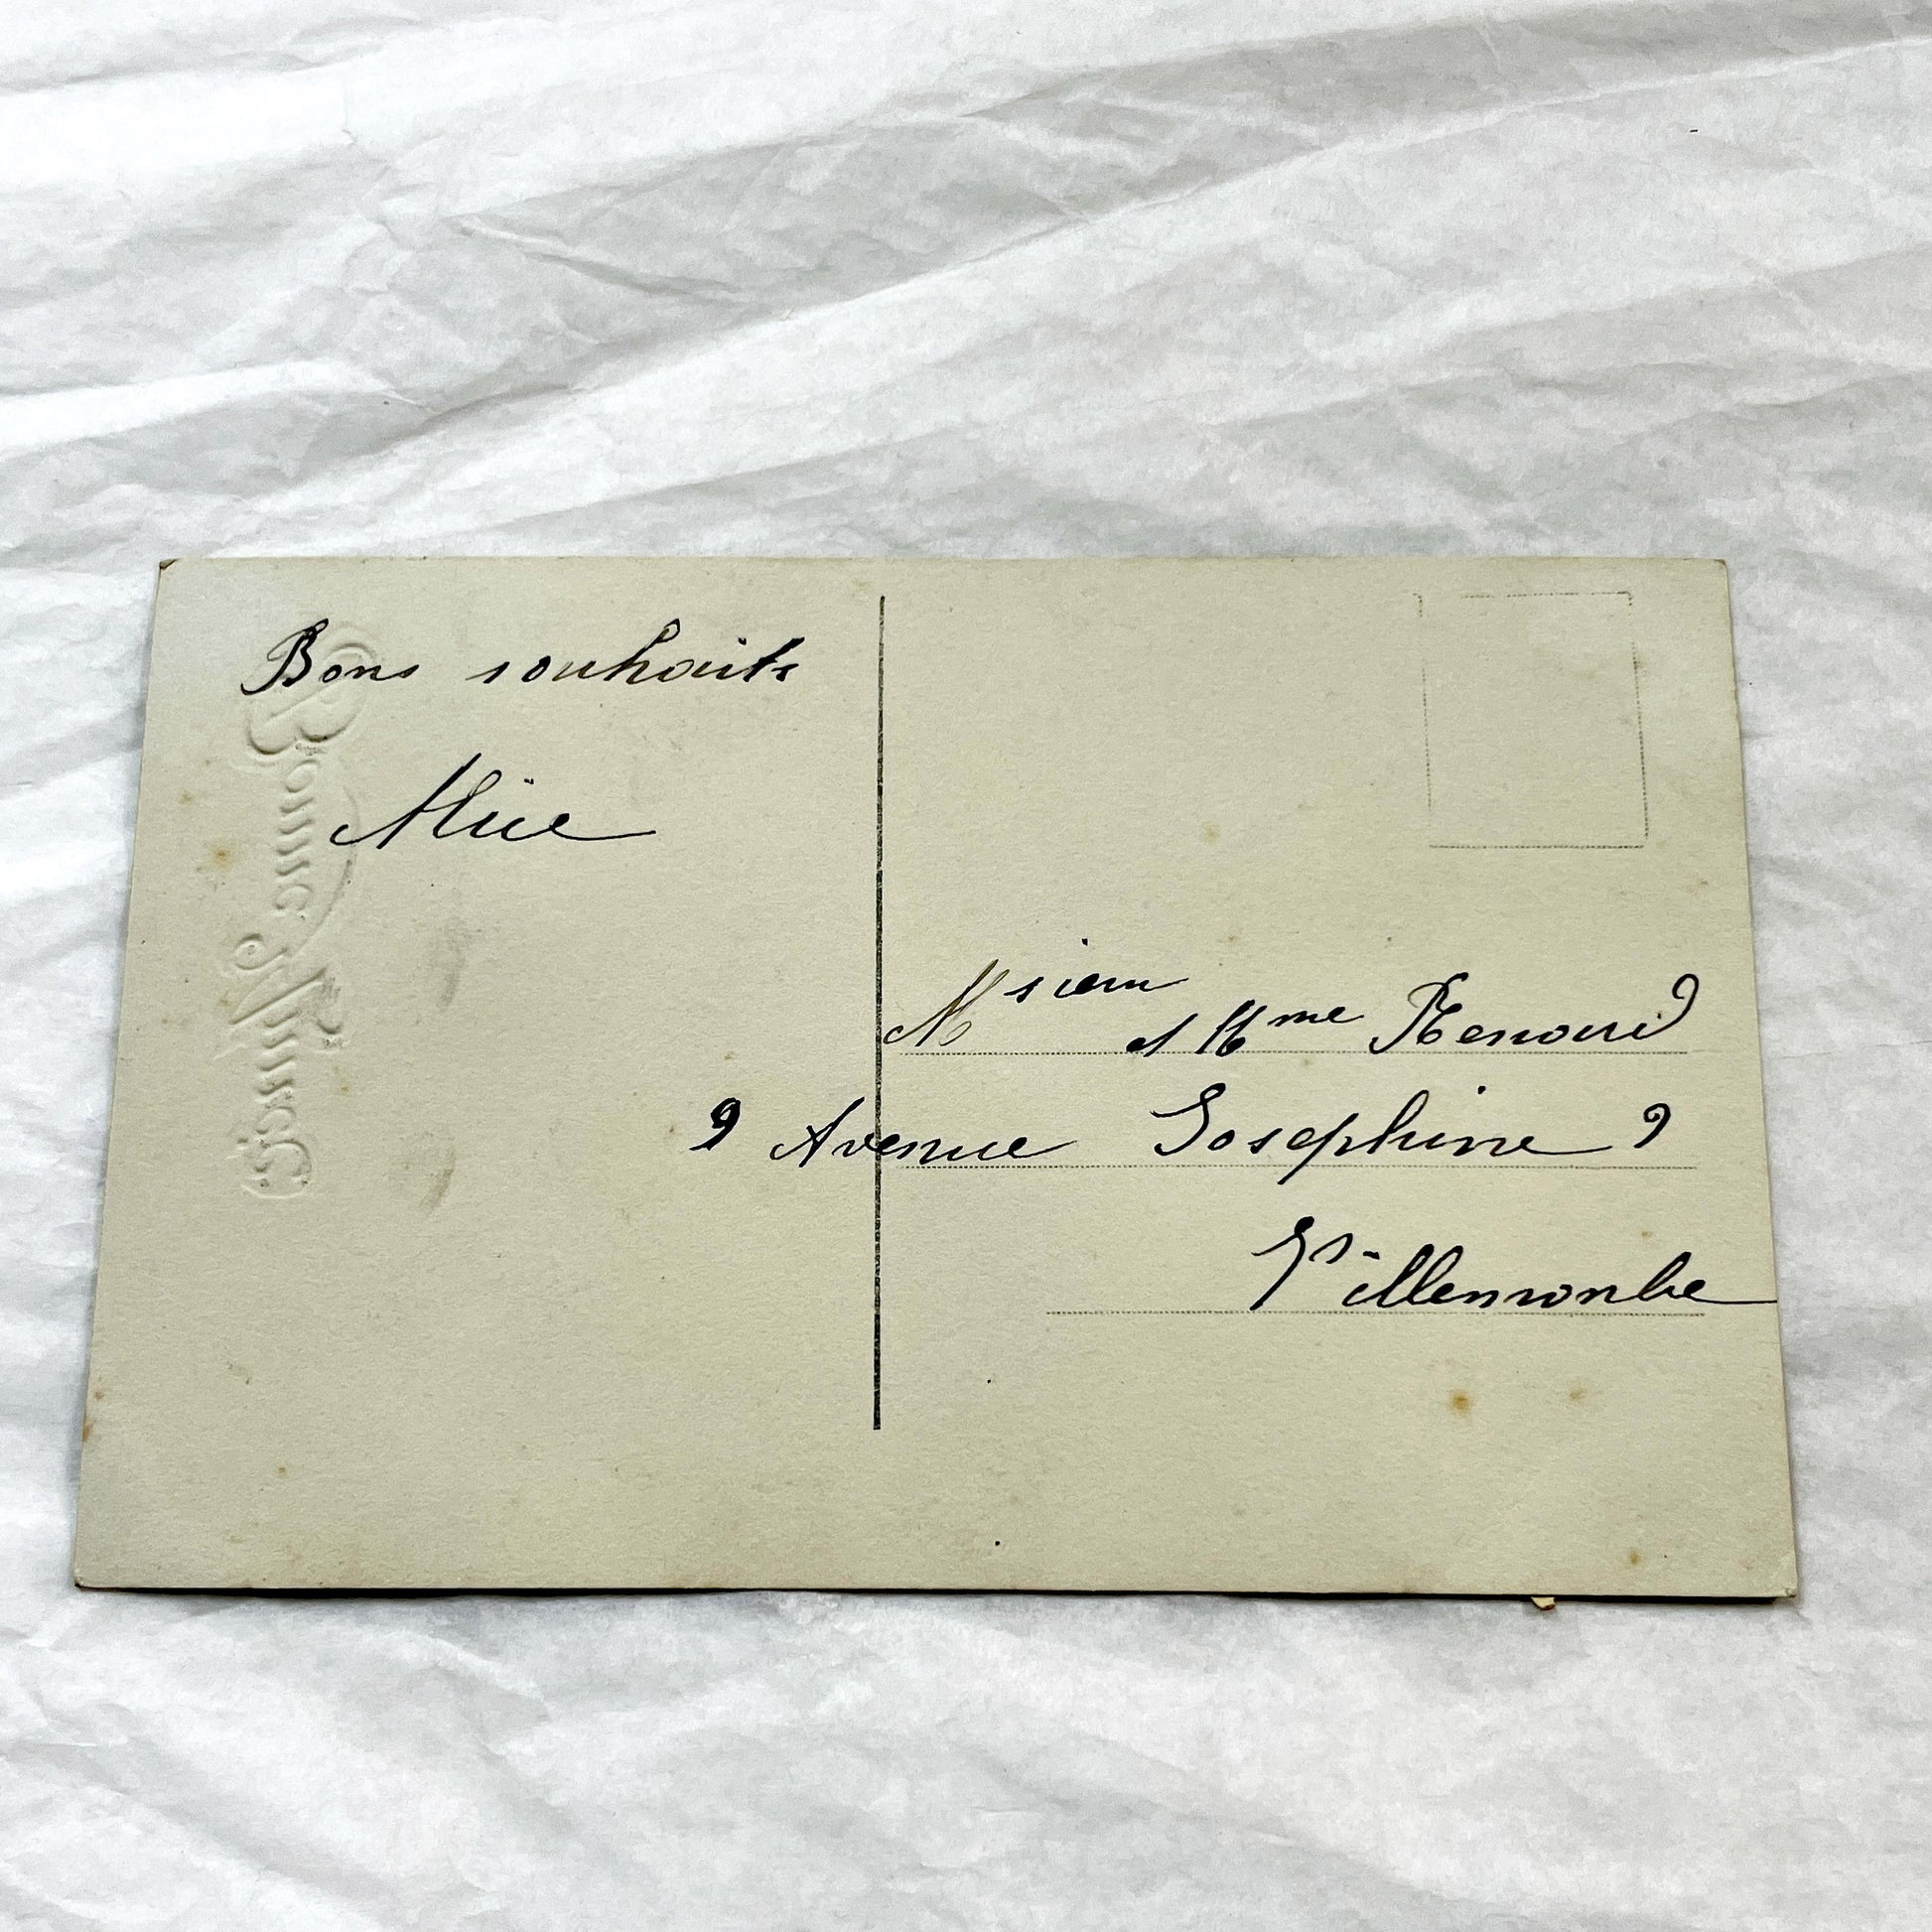 Bons souhaits
Alice
Msieur et Mme Renard
9 Avenue Josephine 9
Villemomble
Bonne Année